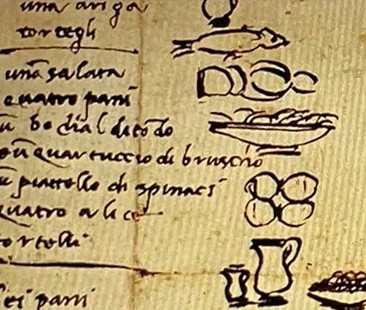 una aringa
tortegli
una salata
quatro pani
ũ bochal di tōdo
e ũ quartuccio di bruscho
ũ piattello di spinaci
quatro alice
tortelli
sei pani